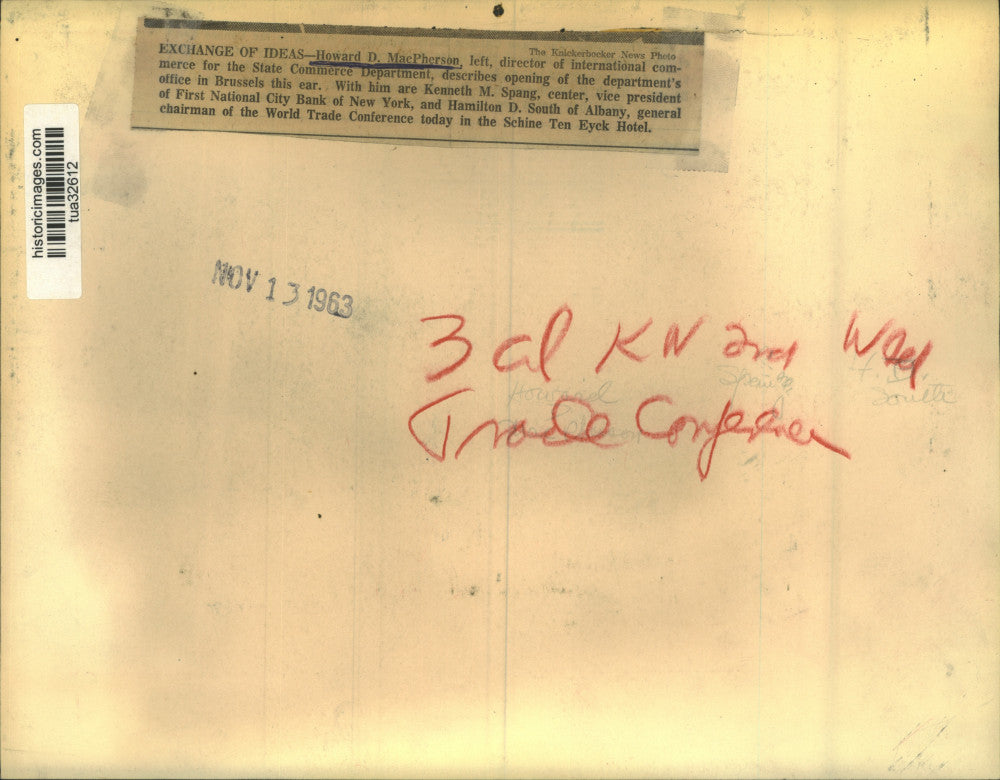 The Knickerbocker News Photo
EXCHANGE OF IDEAS—Howard D. MacPherson, left, director of international com-
merce for the State Commerce Department, describes opening of the department's
office in Brussels this ear. With him are Kenneth M. Spang, center, vice president
of First National City Bank of New York, and Hamilton D. South of Albany, general
chairman of the World Trade Conference today in the Schine Ten Eyck Hotel.
historicimages.com
tua32612
NOV 13 1963
3 col KN 2nd Wed
Howard
Trade Conference